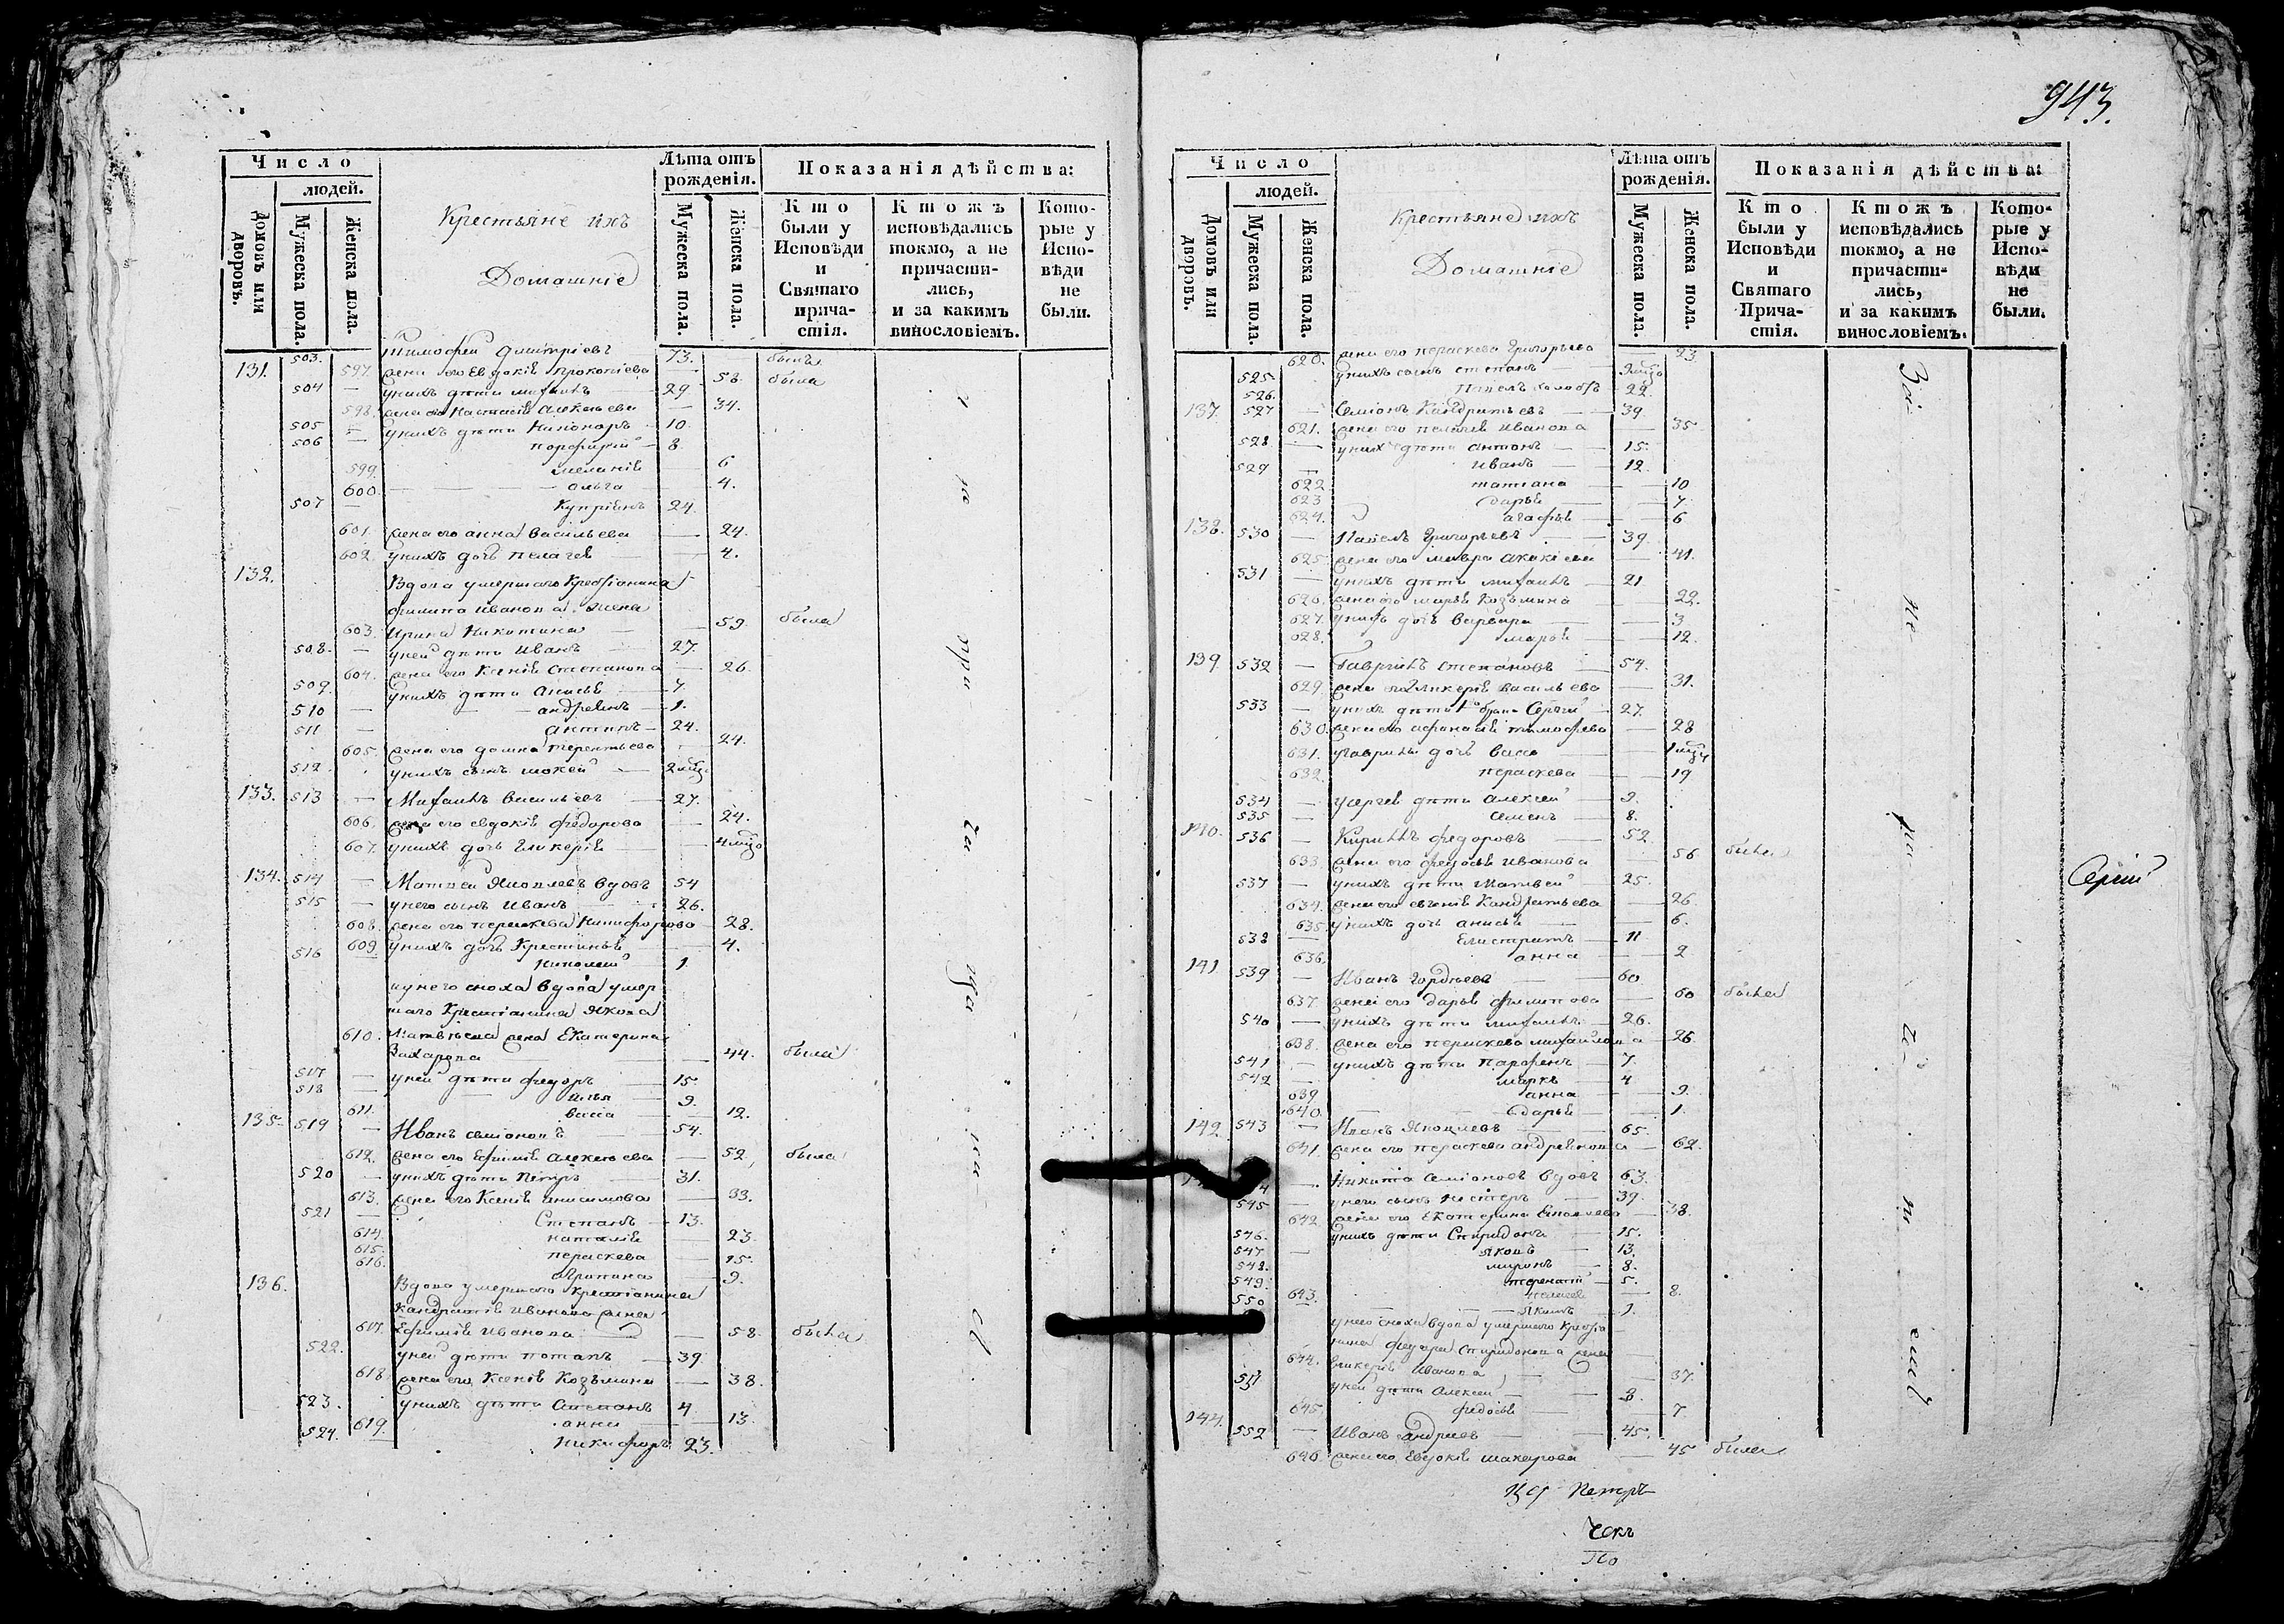 943.
Число
людей.
Домовъ или дворовъ.
Мужеска пола.
Женска пола.
Крестьяне ихъ
Домашніе
Лѣта отъ рожденія.
Мужеска пола.
Женска пола.
Показанія дѣйства:
Кто были у Исповѣди и Святаго прича-стія.
Ктожъ исповѣдались токмо, а не причасти-лись, и за какимъ винословіемъ.
Кото-рые у Испо-вѣди не были.
131. 503. Тимофей Дмитріевъ 73. былъ
597. жена его Евдокія Прокопіева 58. была
504 — унихъ дѣти Михаилъ 29.
598. жена его Настасія Алексеева — 34.
505 — унихъ дѣти Никоноръ 10.
506 — порфирій 8.
599. меланія 6
600. ольга 4.
507 — Купріянъ 24.
601. жена его анна васильева — 24.
602. унихъ дочь пелагея — 4.
132. Вдова умершаго Крестіанина
филипа иванова жена
603. Ирина Никитина — 59. была
508. — уней дѣти Иванъ 27.
604. жена его Ксенія Степанова — 26.
509. унихъ дѣти
510 — андреянъ 1.
511 антипъ 24.
605. жена его домна терентьева — 24.
512. унихъ сынъ мокей
133. 513 — Михаилъ васильевъ 27.
606. жена его евдокія федорова — 24.
607. унихъ дочь гликерія
134. 514 — Матвей Яковлевъ вдовъ 54
515 — унего сынъ Иванъ 26.
608. жена его пераскева Никифорова 28.
609 унихъ дочь Крестинья — 4.
516 николай 1.
и унего сноха вдова умер
шаго Крестіанина Якова
610. Матвѣева жена Екатерина
Захарова — 44. была
517 — уней дѣти федоръ 15
518 — илья 9.
611. васса — 12.
135. 519 — Иванъ семіоновъ 54.
612. жена его Ефимія алексеева — 52. была
520 — унихъ дѣти Петръ 31.
613. жена его Ксенія анисимова — 33.
521 — Степанъ 13.
614. наталія — 23.
615. пераскева — 15.
616. агрипина — 9.
136. Вдова умершаго крестіанина
Кандратія Иванова жена
617. Ефимія Иванова — 58. была
522. уней дѣти потапъ 39.
618 жена его Ксенія Козьмина — 38.
523. унихъ дѣти Степанъ 4
619. анна — 13.
524. Никифоръ 23.
Число
людей.
Домовъ или дворовъ.
Мужеска пола.
Женска пола.
Крестьяне ихъ
Домашніе
Лѣта отъ рожденія.
Мужеска пола.
Женска пола.
Показанія дѣйства:
Кто были у Исповѣди и Святаго Прича-стія.
Ктожъ исповѣдались токмо, а не причасти-лись, и за какимъ винословіемъ.
Кото-рые у Испо-вѣди не были.
620. жена его пераскева Григорьева 23.
525. унихъ сынъ степанъ
526. Павелъ 22.
137. 527 — Семіонъ Кандратьевъ 39.
621. жена его пелагея Иванова — 35
528 — унихъ дѣти антонъ 15.
529 — иванъ 12.
622 татіана — 10
623 дарья — 7.
624. агафья — 6
138. 530 — Павелъ Григорьевъ 39.
625. жена его мавра акакіева — 41.
531 — унихъ дѣти михаилъ 21
626. жена его марья Козьмина 22.
627. унихъ дочь варвара — 3
628. марья — 12.
139. 532 — Гаврилъ степановъ 54.
629. жена его гликерія васильева — 31.
533 — Сергей 27.
630. жена его афанасія тимофеева — 28
631. угаврилы дочь васса
632. пераскева — 19
534 — усергея дѣти алексей 9.
535 — семенъ 8.
140. 536 — Кирилъ федоровъ 52.
633 жена его федосья иванова — 56 была
537 — унихъ дѣти Матвей 25.
Сергій
634. жена его евгенія Кандратьева — 26.
635. унихъ дочь анисья — 6.
538 — Елистратъ 11
636. анна — 2
141. 539 — Иванъ гордѣевъ 60
637 жена его дарья филипова — 60 была
540 — унихъ дѣти михаилъ 26.
638. жена его пераскева михайлова — 26.
541 — унихъ дѣти парфенъ 7.
542 — марко 4
639 анна — 9.
640. дарья — 1.
142. 543 — Иванъ Яковлевъ 65.
641. жена его пераскева андреянова — 62.
— Никита семіоновъ вдовъ 63.
545 — унего сынъ нестеръ 39.
642 жена его Екатерина — 38.
546. унихъ дѣти Спиридонъ 15.
547 — яковъ 13.
548. миронъ 8.
549. терентій 5.
643. пелагея — 8.
550 якимъ 1.
унего сноха вдова умершаго Крестіа
нина федора Спиридонова жена
644. гликерія Иванова — 37.
551 уней дѣти Алексей
645. федосья — 7
144. 552 — Иванъ андреевъ 45.
646. жена его Евдокія макарова — 45 была
Петръ